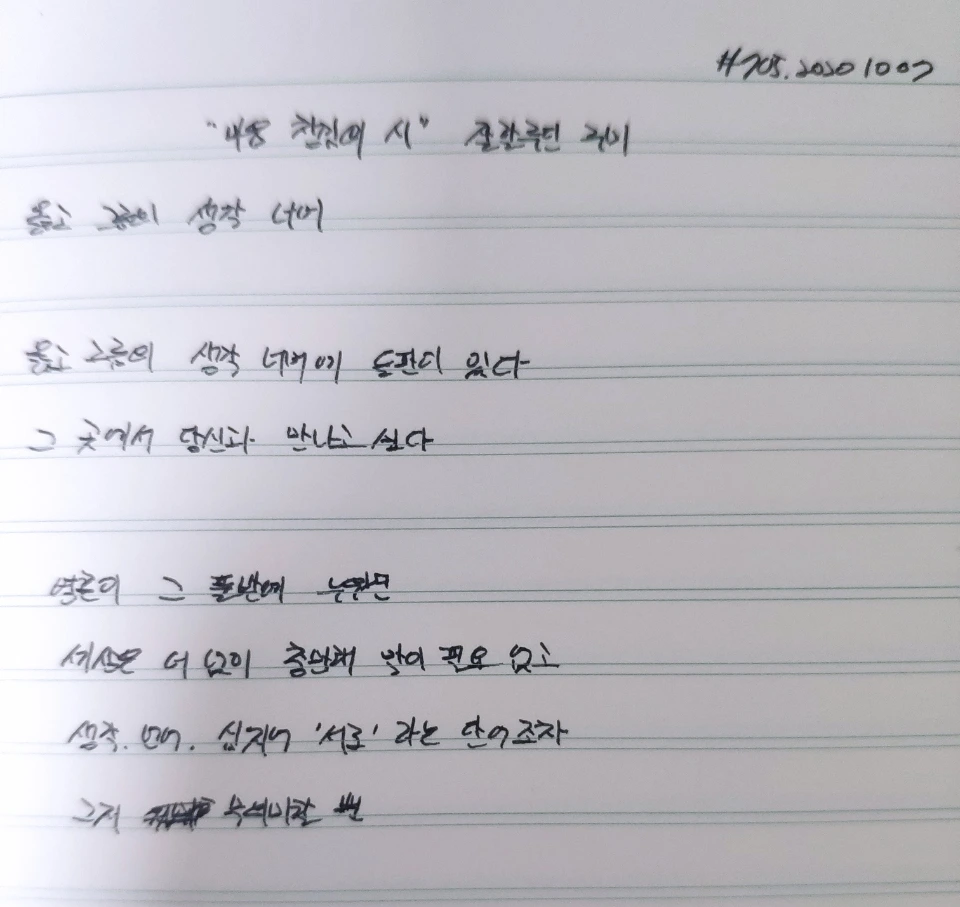 #705. 20201007
"내용 참집의 시" 잘랄루딘 루미
옳고 그름의 생각 너머
옳고 그름의 생각 너머에 들판이 있다
그 곳에서 당신과 만나고 싶다
영혼이 그 풀밭에 누우면
세상은 더 없이 충만해 말이 필요 없고
생각. 언어. 심지어 '서로' 라는 단어조차
그저 할 뿐